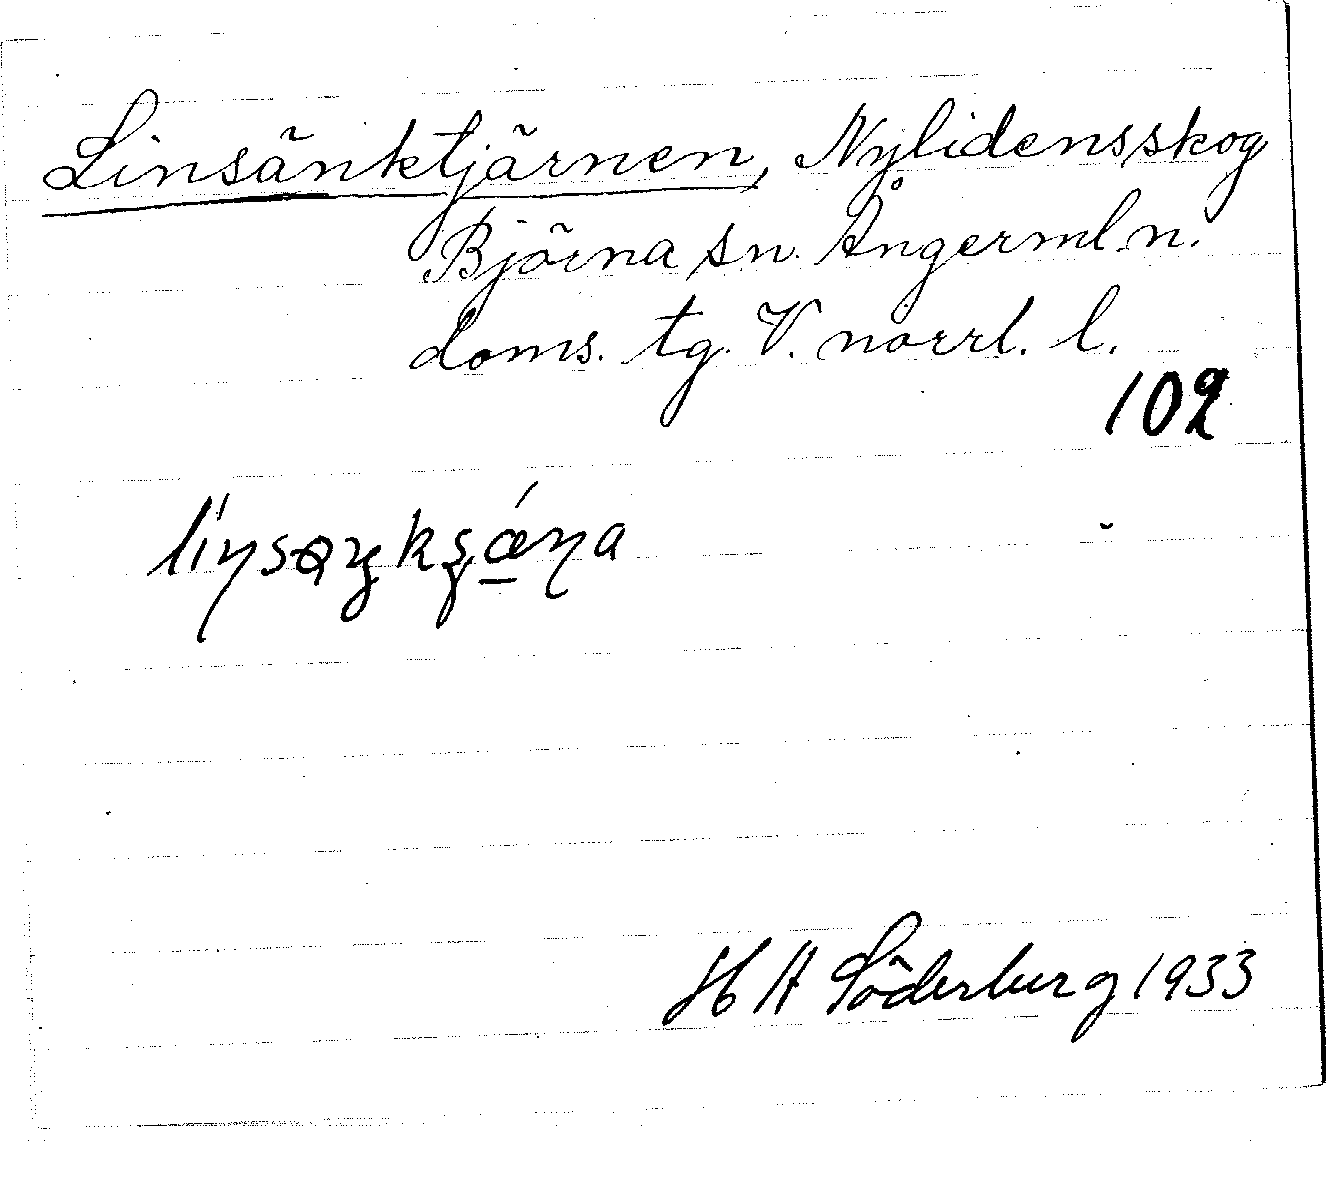 Linsänktjärnen, Nylidensskog
Björna sn. Ångerml.n.
doms. tg. V. norrl. l.
102
H A Söderberg 1933